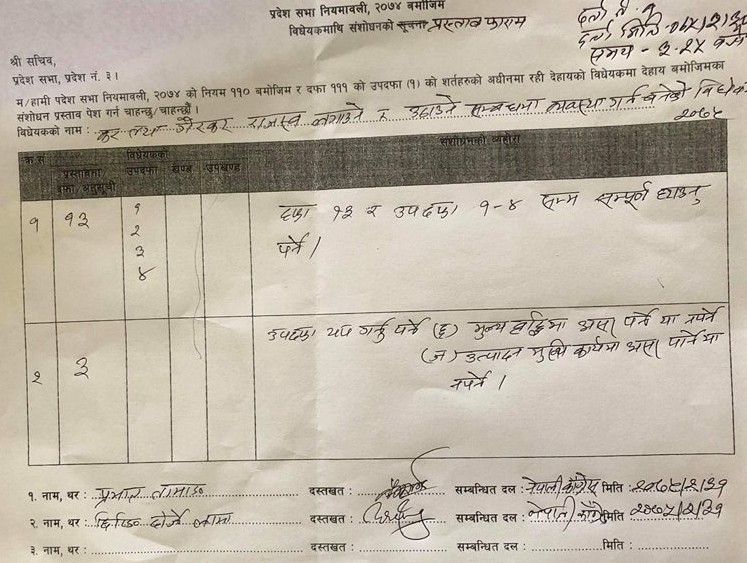 प्रदेश सभा नियमावली, २०७४ बमोजिम
विधेयकमाथि संशोधनको सूचना प्रस्ताव फाराम
दर्ता नं. १
दर्ता मिति -
समय - ३.२५ बजे
श्री सचिव,
प्रदेश सभा, प्रदेश नं. ३।
म/हामी प्रदेश सभा नियमावली, २०७४ को नियम ११० बमोजिम र दफा १११ को उपदफा (१) को शर्तहरुको अधीनमा रही देहायको विधेयकमा देहाय बमोजिमका
संशोधन प्रस्ताव पेश गर्न चाहन्छु/चाहन्छौं।
विधेयकको नाम : कर तथा गैरकर राजस्व लगाउने र उठाउने सम्बन्धमा व्यवस्था गर्न बनेको विधेयक
२०७५
क्र.सं विधेयकको संशोधनको व्यहोरा
प्रस्तावना दफा/अनुसूची उपदफा खण्ड उपखण्ड
१ १३ १ २ ३ ४ दफा १३ र उपदफा १-४ सम्म सम्पूर्ण हटाउनु
पर्ने।
२ ३ उपदफा थप गर्नु पर्ने (छ) मुल्य वृद्धिमा असर पर्ने वा नपर्ने
(ज) उत्पादन मुखि कार्यमा असर पार्ने वा
नपर्ने।
१. नाम, थर : प्रभात तामाङ दस्तखत : सम्बन्धित दल : नेपाली काँग्रेस मिति : २०७५/२/३१
२. नाम, थर : दोर्जे लामा दस्तखत : सम्बन्धित दल : नेपाली काँग्रेस मिति २०७५/२/३१
३. नाम, थर : दस्तखत : सम्बन्धित दल : मिति :